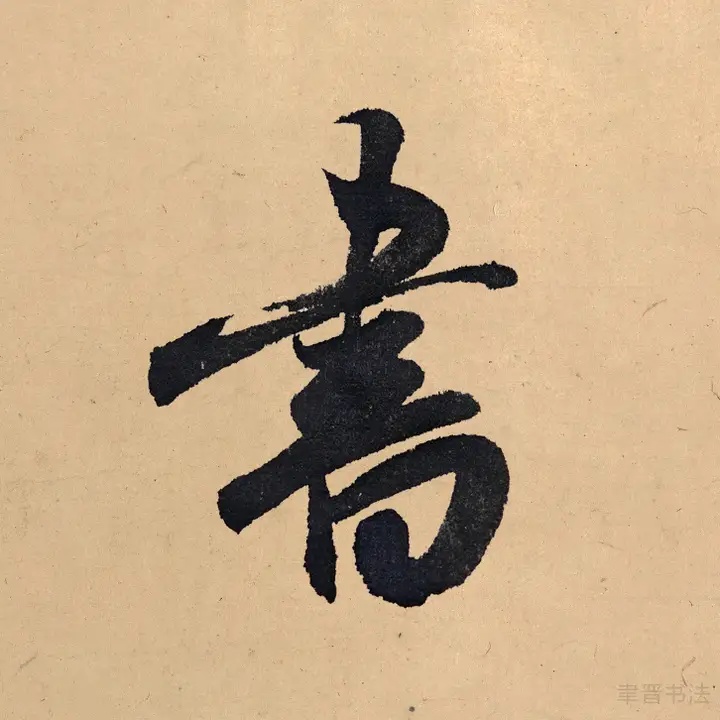 書
聿晋书法